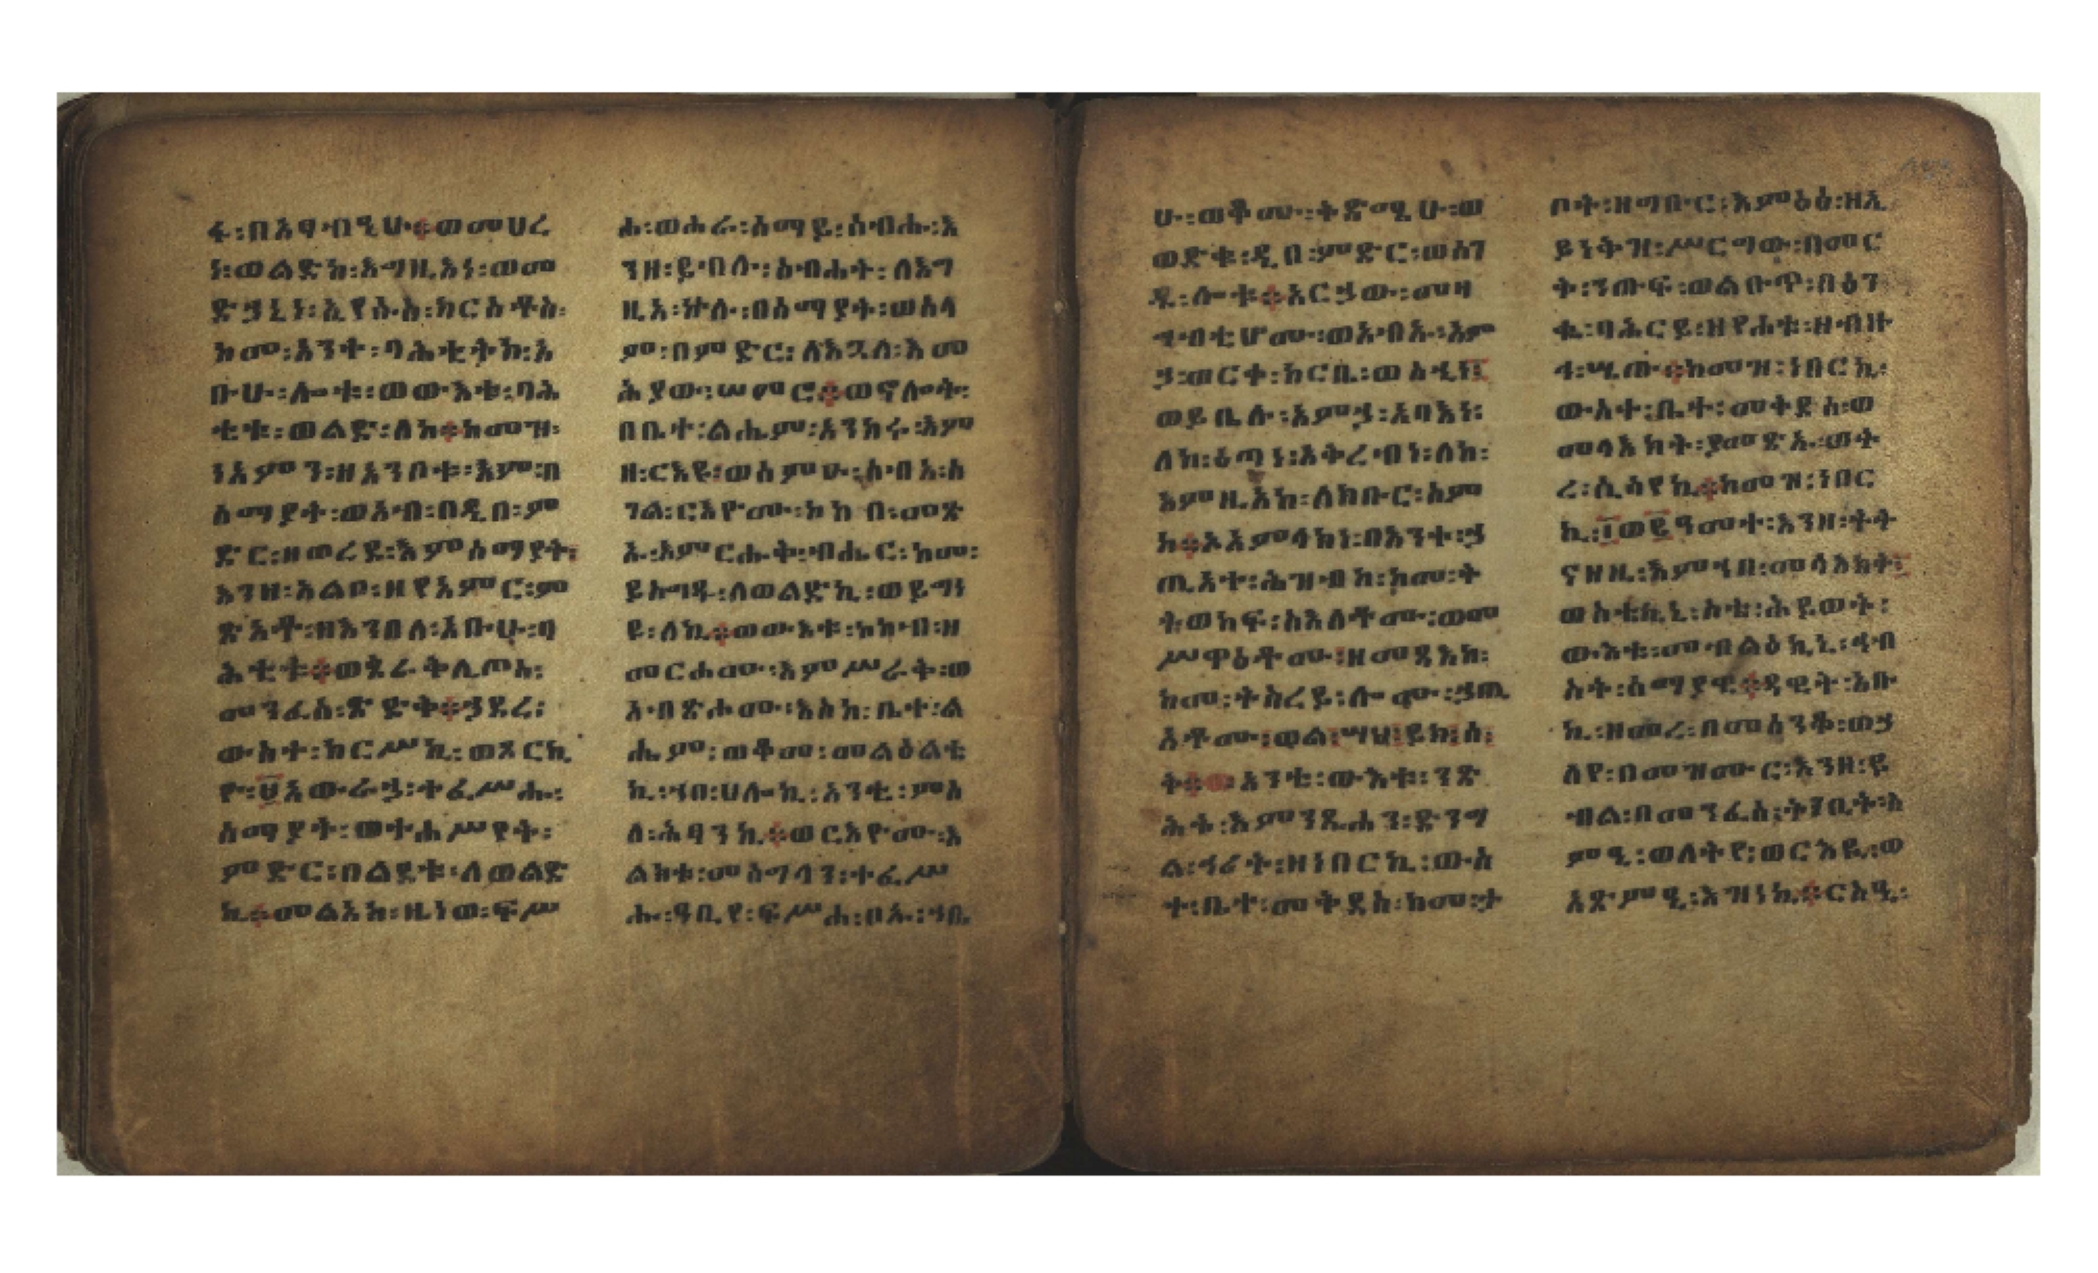 ፋ፡በአዋብዒሁ፨ወመሀረ
ነ፡ወልድከ፡እግዚእነ፡ወመ
ድኃኒነ፡ኢየሱስ፡ክርስቶስ፡
ከመ፡አንተ፡ባሕቲትከ፡አ
ቡሁ፡ሎቱ፡ወውእቱ፡ባሕ
ቲቱ፡ወልድ፡ለከ፨ከመዝ፡
ንእምን፡ዘእንበቱ፡እም፡በ
ሰማያት፡ወአብ፡በዲበ፡ም
ድር፡ዘወረደ፡እምሰማያት፡
እንዘ፡አልቦ፡ዘየአምር፡ም
ጽአቶ፡ዘእንበለ፡አቡሁ፡ባ
ሕቲቱ፨ወጰራቅሊጦስ፡
መንፈስ፡ጽድቅ፨ኃደረ፡
ውስተ፡ከርሥኪ፡ወጾርኪ
ዮ፡፱አውራኃ፡ተፈሥሑ፡
ሰማያት፡ወተሐሥየት፡
ምድር፡በልደቱ፡ለወልድ
ኪ፨መልአከ፡ዜነወ፡ፍሥ
ሐ፡ወሐራ፡ሰማይ፡ሰብሑ፡እ
ንዘ፡ይብሉ፡ስብሐት፡ለእግ
ዚአ፡ኵሉ፡በሰማያት፡ወሰላ
ም፡በምድር፡ለእጓለ፡እመ
ሕያው፡ሠምሮ፨ወኖሎት፡
በቤተ፡ልሔም፡አንከሩ፡እም
ዘ፡ርእዩ፡ወሰምዑ፡ሰብአ፡ሰ
ገል፡ርእዮሙ፡ኮከበ፡መጽ
ኡ፡እምርሑቅ፡ብሔር፡ከመ፡
ይስግዱ፡ለወልድኪ፡ወይግነ
ዩ፡ለኪ፨ወውእቱ፡ኮከብ፡ዘ
መርሖሙ፡እምሥራቅ፡ወ
አብጽሖሙ፡እስከ፡ቤተ፡ል
ሔም፡ወቆመ፡መልዕልቲ
ኪ፡ኀበ፡ሀሎኪ፡አንቲ፡ምስ
ለ፡ሕፃንኪ፨ወርእዮሙ፡እ
ልክቱ፡መሰግላን፡ተፈሥ
ሑ፡ዓቢየ፡ፍሥሐ፡ቦኡ፡ኀቤ
ሁ፡ወቆሙ፡ቅድሜሁ፡ወ
ወድቁ፡ዲበ፡ምድር፡ወሰገ
ዱ፡ሎቱ፨አርኃው፡መዛ
ግብቲሆሙ፡ወአብኡ፡አም
ኃ፡ወርቀ፡ከርቤ፡ወስኂነ፡
ወይቤሉ፡አምኃ፡አባእነ፡
ለከ፡ዕጣነ፡አቅረብነ፡ለከ፡
እምዚአከ፡ለክቡር፡ስም
ከ፨ኦአምላክነ፡በእንተ፡ኃ
ጢአተ፡ሕዝብከ፡ከመ፡ት
ትወከፍ፡ስእለቶሙ፡ወመ
ሥዋዕቶሙ፡ዘመጻእከ፡
ከመ፡ትስረይ፡ሎሙ፡ኃጢ
አቶሙ፡ወልሣህ፡ይክ፡ስ፡
ት፨ወአንቲ፡ውእቱ፡ንጽ
ሕት፡እምንጹሐን፡ድንግ
ል፡ኅሪት፡ዘነበርኪ፡ውስ
ተ፡ቤተ፡መቅደስ፡ከመ፡ታ
ቦት፡ዘግቡር፡እምዕፅ፡ዘኢ
ይነቅዝ፡ሥርግው፡በመር
ት፡ንጡፍ፡ወልቡጥ፡በዕን
ቈ፡ባሕርይ፡ዘየሐቱ፡ዘብዙ
ኅ፡ሤጡ፨ከመዝ፡ነበርኪ፡
ውስተ፡ቤተ፡መቅደስ፡ወ
መላእክት፡ያመጽኡ፡ወት
ረ፡ሲሳየኪ፨ከመዝ፡ነበር
ኪ፡፲ወ፪ዓመተ፡እንዘ፡ትት
ናዘዚ፡እምኀበ፡መላእክት፡
ወስቴኪኒ፡ስቴ፡ሕይወት፡
ውእቱ፡መብልዕኪኒ፡ኅብ
ስት፡ሰማያዊ፨ዳዊት፡አቡ
ኪ፡ዘመረ፡በመሰንቆ፡ወኃ
ለየ፡በመዝሙር፡እንዘ፡ይ
ብል፡በመንፈሰ፡ትንቢት፡ስ
ምዒ፡ወለትየ፡ወርእዪ፡ወ
አጽምዒ፡እዝነኪ፨ርስዒ፡